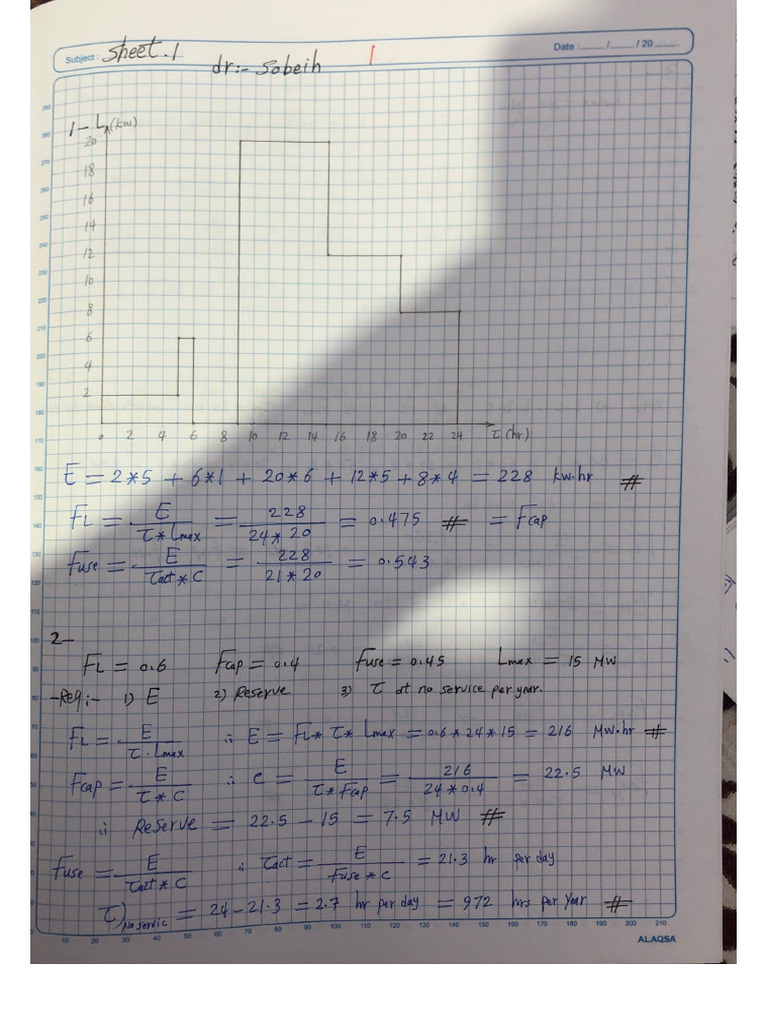 Subject: Sheet.1
Date: / / 20
dr:- Sobeih
1
1- L (kw)
20
18
16
14
12
10
8
6
4
2
0 2 4 6 8 10 12 14 16 18 20 22 24 τ (hr)
E = 2*5 + 6*1 + 20*6 + 12*5 + 8*4 = 228 kw.hr #
FL = E / τ*Lmax = 228 / 24*20 = 0.475 # = Fcap
Fuse = E / τact*C = 228 / 21*20 = 0.543
2-
FL = 0.6 Fcap = 0.4 Fuse = 0.45 Lmax = 15 MW
-Req:- 1) E 2) Reserve 3) τ at no service per year.
FL = E / τ.Lmax ∴ E = FL* τ* Lmax = 0.6*24*15 = 216 MW.hr #
Fcap = E / τ*C ∴ C = E / τ*Fcap = 216 / 24*0.4 = 22.5 MW
∴ Reserve = 22.5 - 15 = 7.5 MW #
Fuse = E / τact*C ∴ τact = E / Fuse*C = 21.3 hr per day
τ)No servic = 24 - 21.3 = 2.7 hr per day = 972 hrs per year #
10 20 30 40 50 60 70 80 90 100 110 120 130 140 150 160 170 180 190 200 210
ALAQSA